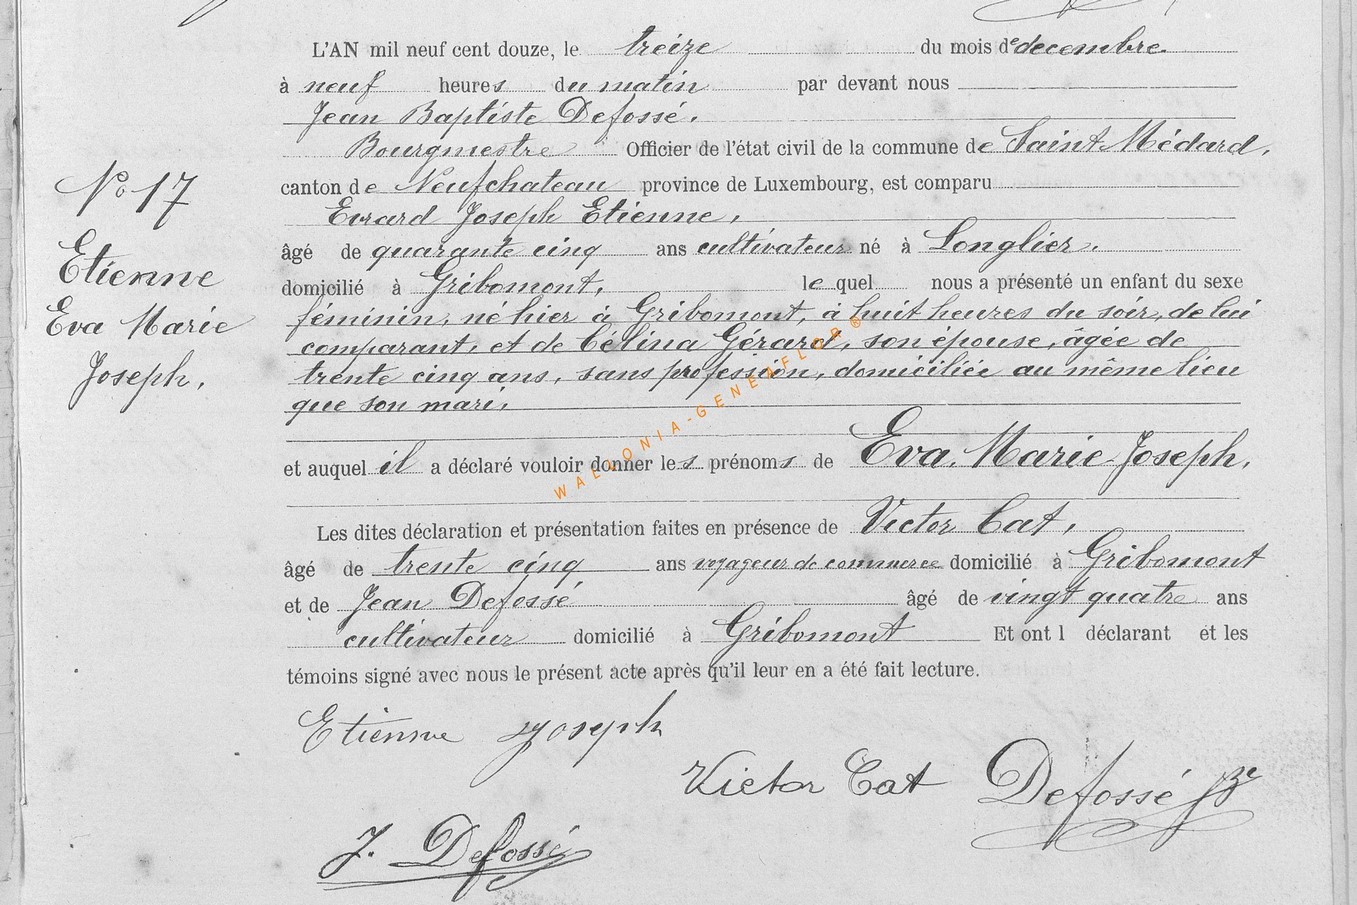 L'AN mil neuf cent douze, le treize du mois de decembre
à neuf heures du matin par devant nous
Jean Baptiste Defossé.
Bourgmestre Officier de l'état civil de la commune de Saint Médard,
canton de Neufchateau province de Luxembourg, est comparu
Evrard Joseph Etienne,
âgé de quarante cinq ans cultivateur né à Longlier.
domicilié à Gribomont, lequel nous a présenté un enfant du sexe
féminin, né hier à Gribomont, à huit heures du soir, de lui
comparant, et de Célina Gérard, son épouse, âgée de
trente cinq ans, sans profession, domiciliée au même lieu
que son mari,
et auquel il a déclaré vouloir donner les prénoms de Eva. Marie Joseph,
Les dites déclaration et présentation faites en présence de Victor Cat,
âgé de trente cinq ans voyageur de commerce domicilié à Gribomont
et de Jean Defossé âgé de vingt quatre ans
cultivateur domicilié à Gribomont Et ont l déclarant et les
témoins signé avec nous le présent acte après qu'il leur en a été fait lecture.
Etienne Joseph
Victor Cat Defossé
J. Defossé
No 17
Etienne
Eva Marie
Joseph,
WALLONIA-GENEAFLOR®